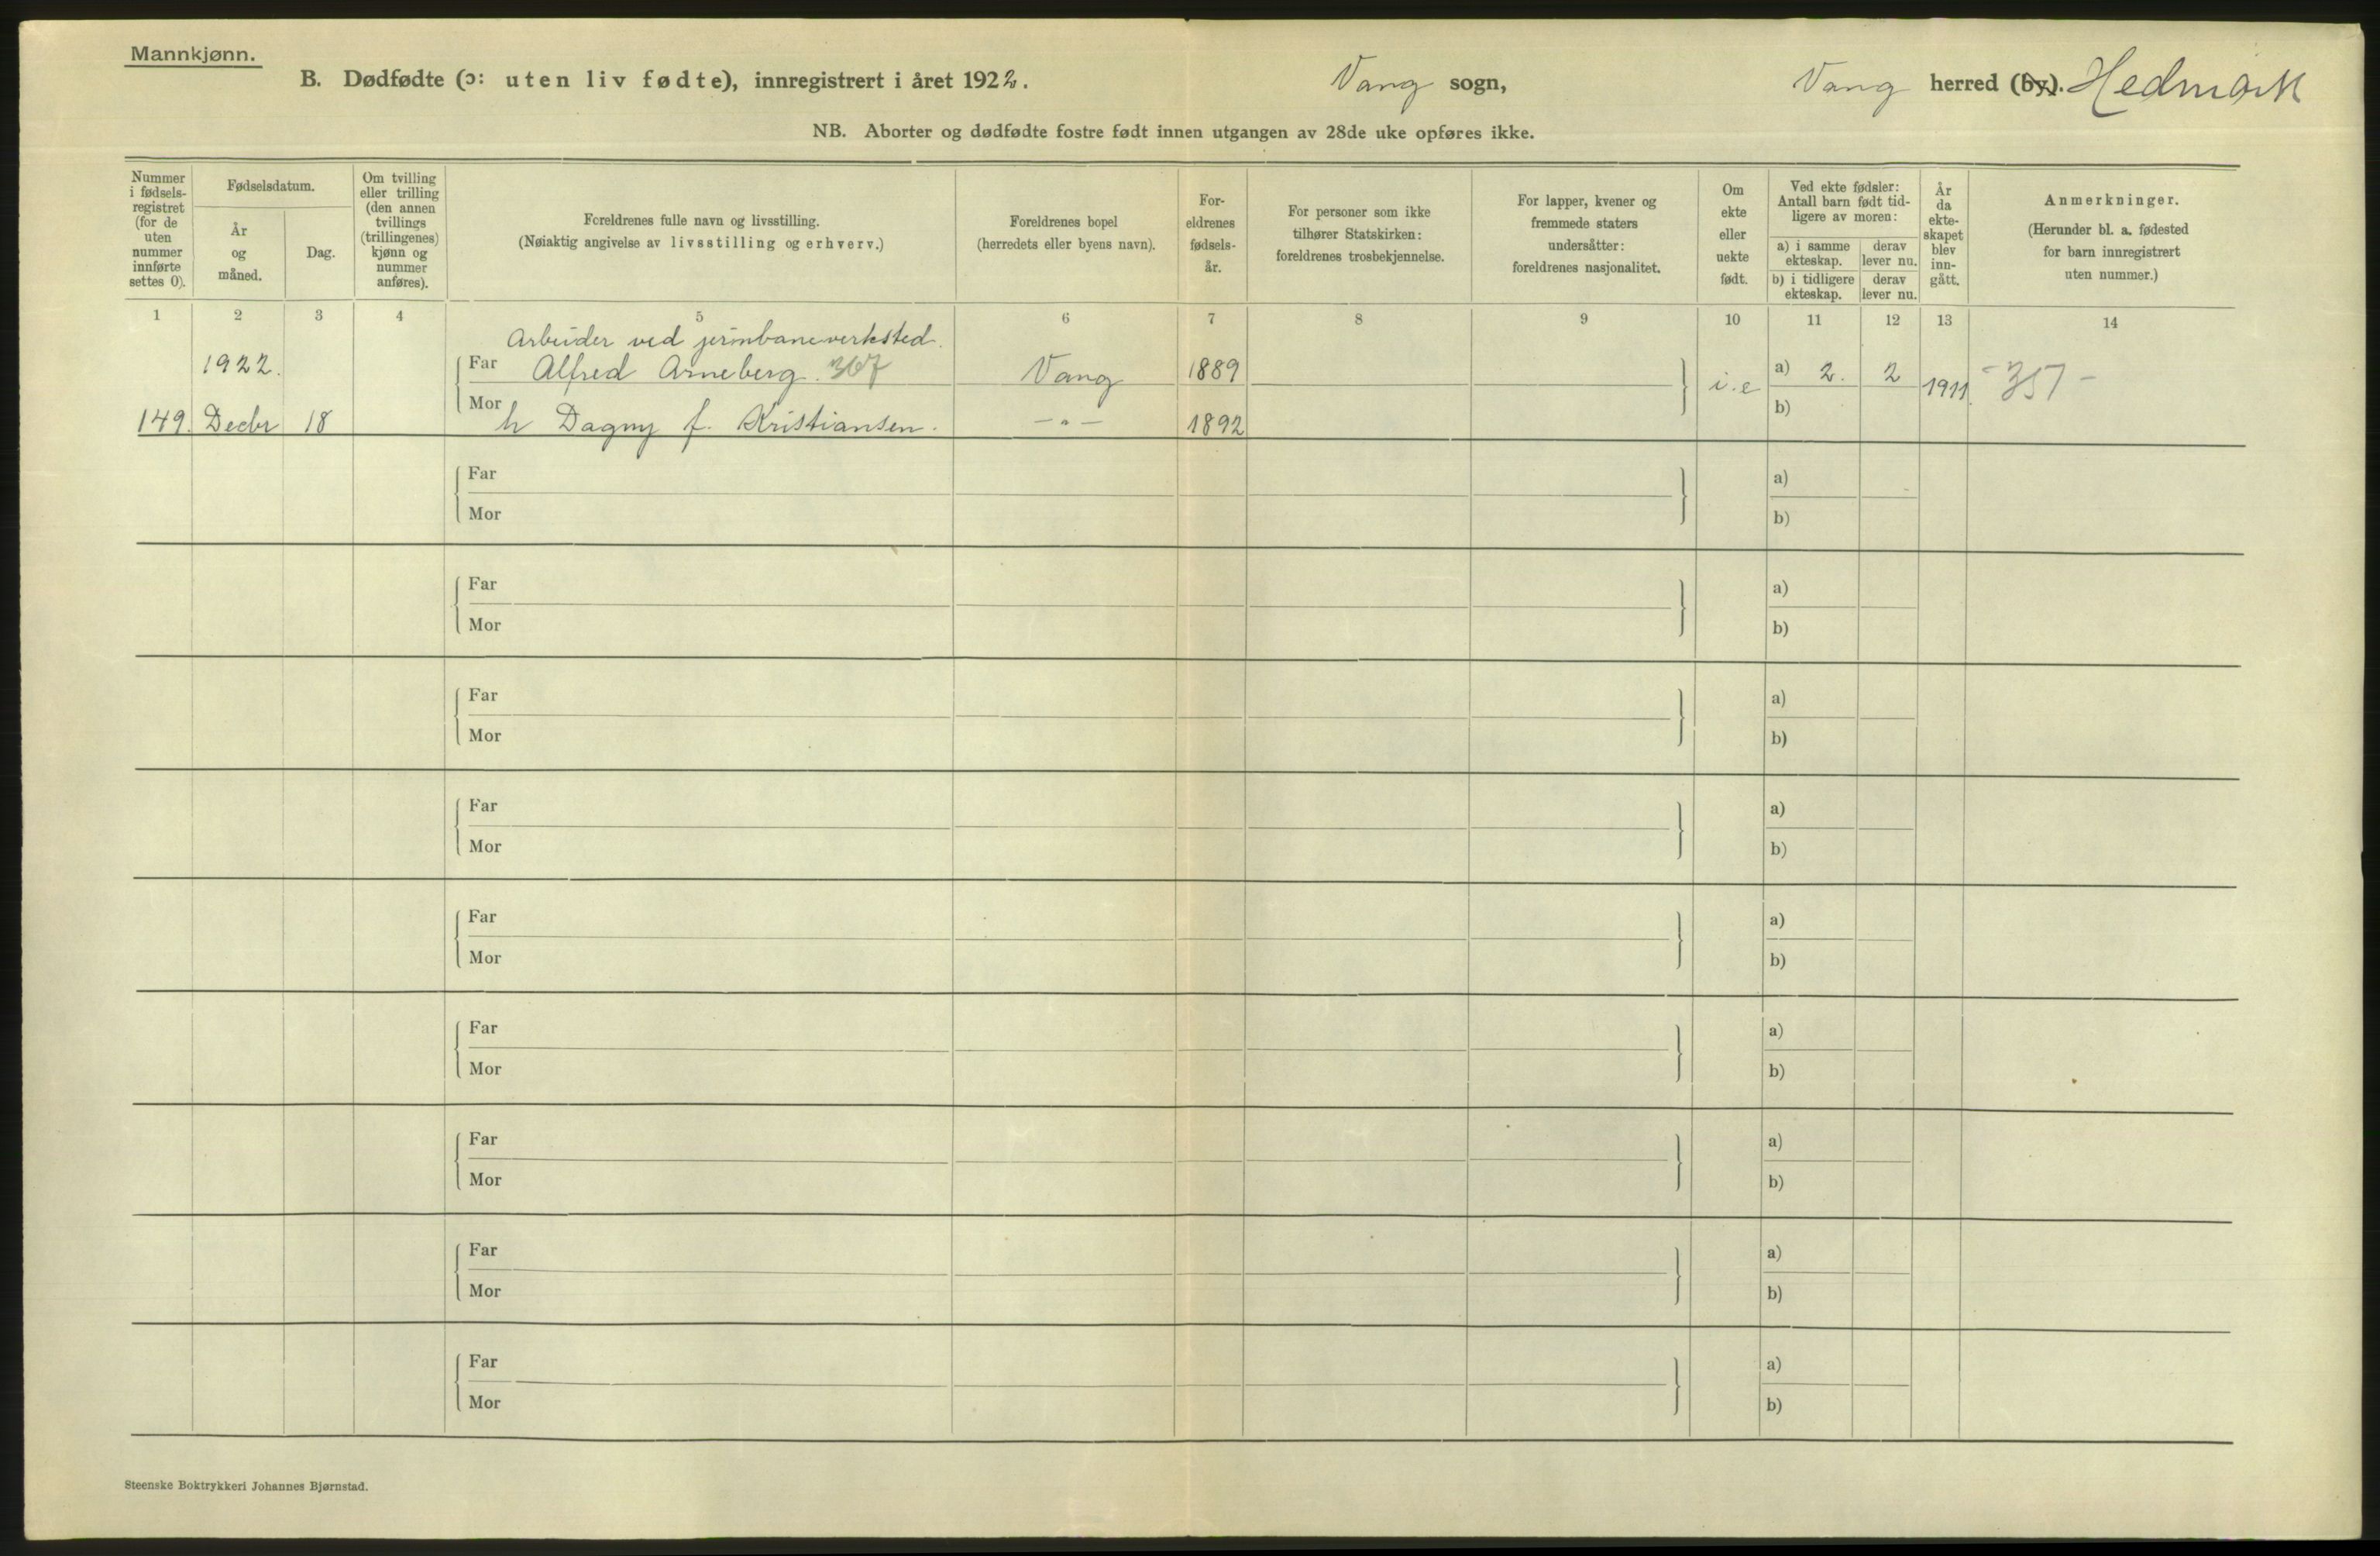 Mannkjønn.
B. Dødfødte (ɔ: uten liv fødte), innregistrert i året 1922. Vang sogn, Vang herred (by). Hedmark
NB. Aborter og dødfødte fostre født innen utgangen av 28de uke opføres ikke.
Nummer i fødsels- registret (for de uten nummer innførte settes 0).
Fødselsdatum.
År og måned.
Dag.
Om tvilling eller trilling (den annen tvillings (trillingenes) kjønn og nummer anføres).
Foreldrenes fulle navn og livsstilling.
(Nøiaktig angivelse av livsstilling og erhverv.)
Foreldrenes bopel
(herredets eller byens navn).
For- eldrenes fødsels- år.
For personer som ikke
tilhører Statskirken:
foreldrenes trosbekjennelse.
For lapper, kvener og
fremmede staters
undersåtter:
foreldrenes nasjonalitet.
Om ekte eller uekte født.
Ved ekte fødsler:
Antall barn født tid-
ligere av moren:
a) i samme ekteskap.
derav lever nu.
b) i tidligere ekteskap.
derav lever nu.
År da ekte- skapet blev inn- gått.
Anmerkninger.
(Herunder bl. a. fødested
for barn innregistrert
uten nummer.)
1 2 3 4 5 6 7 8 9 10 11 12 13 14
Arbeider ved jernbaneverksted.
1922. Far Alfred Arneberg. 367 Vang 1889 i.e a) 2. 2 1911. -357-
149. Decbr 18 Mor h Dagny f. Kristiansen. -"- 1892 b)
Far a)
Mor b)
Far a)
Mor b)
Far a)
Mor b)
Far a)
Mor b)
Far a)
Mor b)
Far a)
Mor b)
Far a)
Mor b)
Far a)
Mor b)
Far a)
Mor b)
Steenske Boktrykkeri Johannes Bjørnstad.